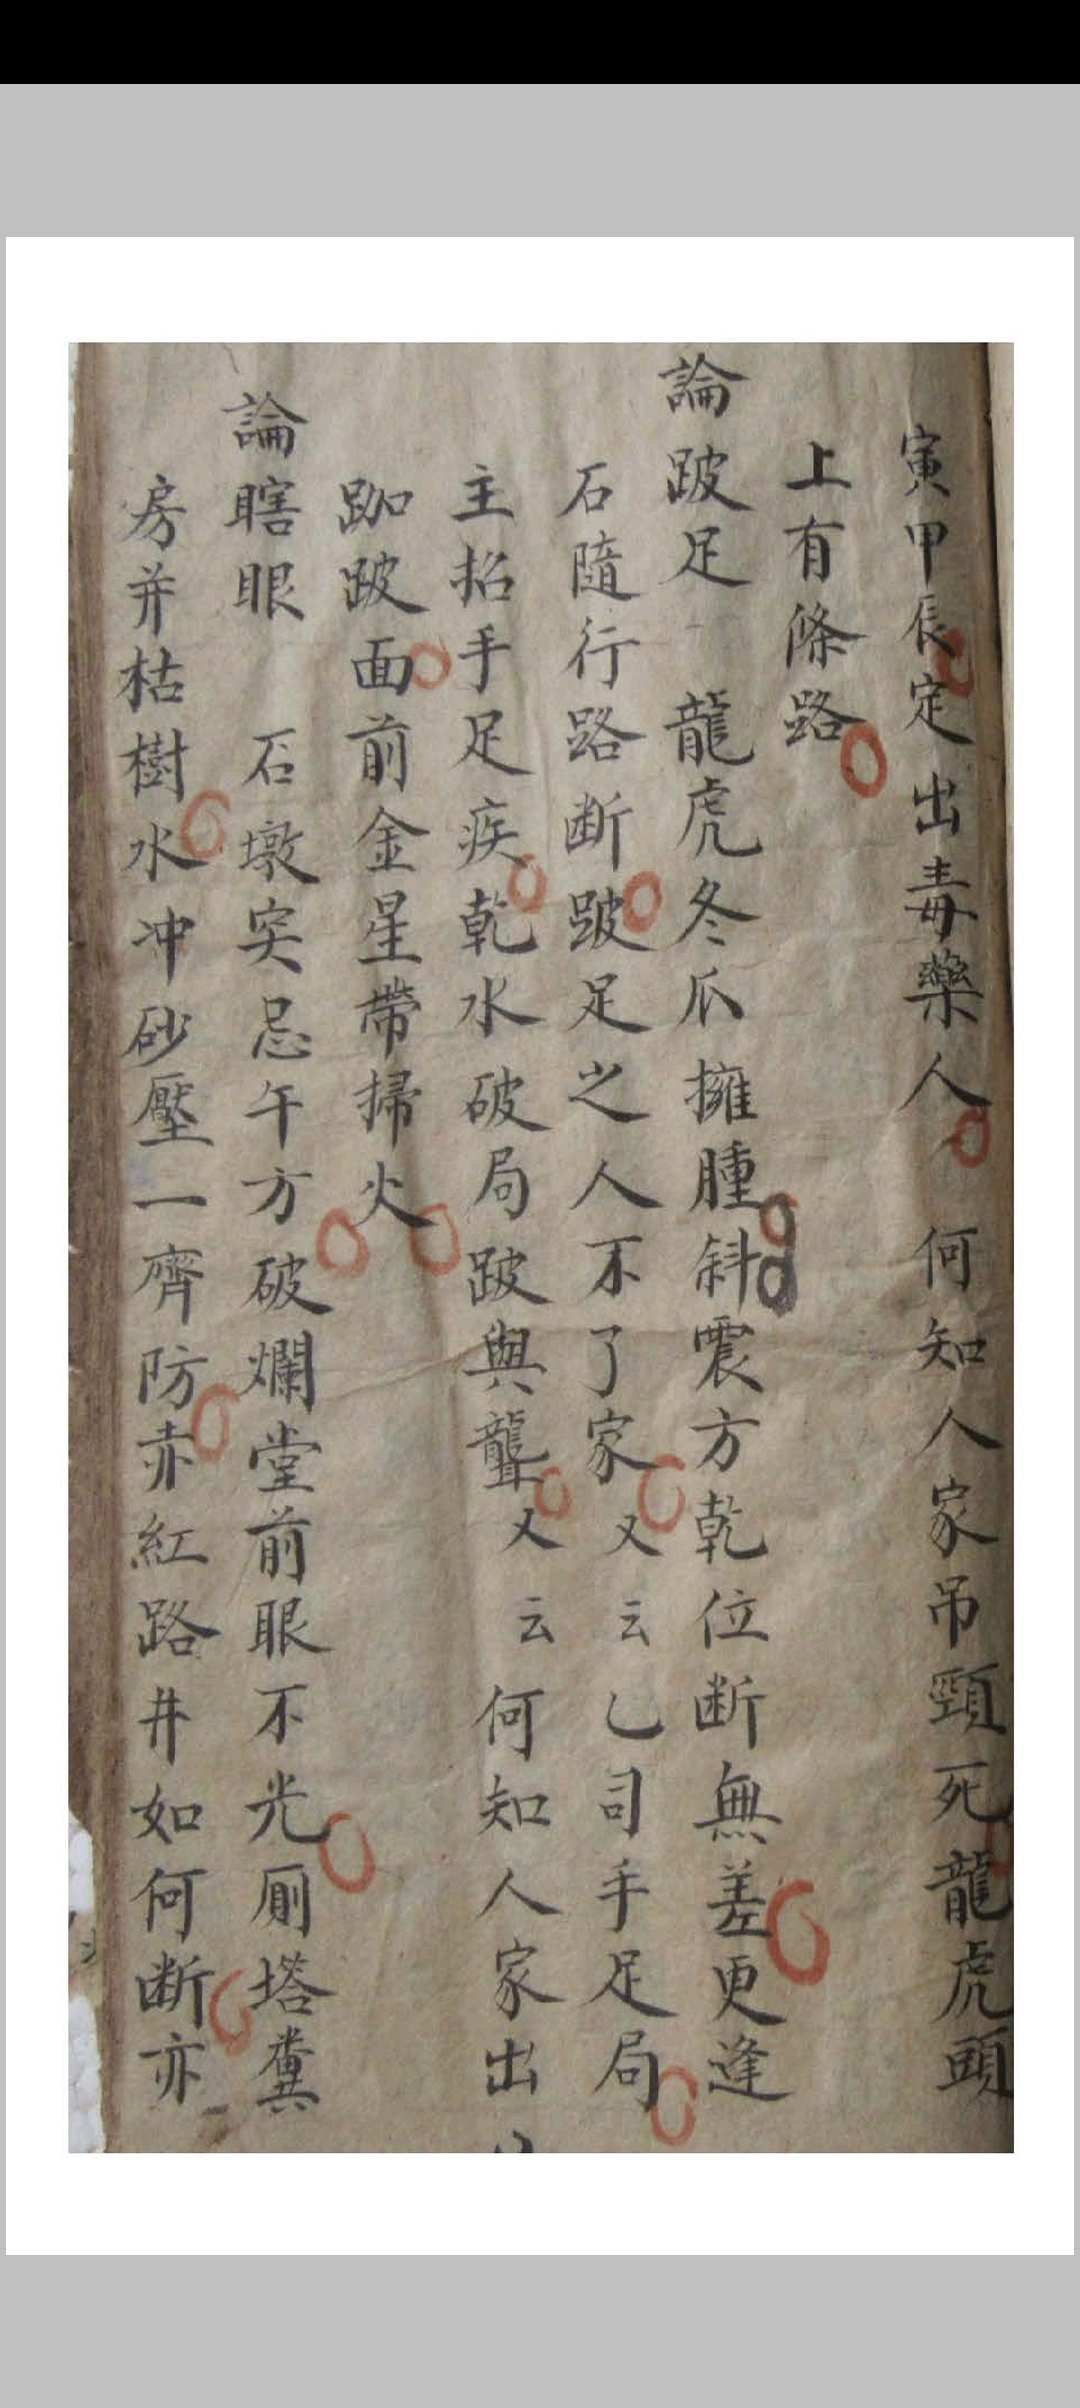 寅甲辰定出毒藥人何知人家吊頸死龍虎頭
上有條路
論跛足 龍虎冬瓜擁腫斜震方乾位断無差更逢
石隨行路断跛足之人不了家又云乙司手足局
主招手足疾乾水破局跛與聾又云何知人家出
跏跛面前金星帶掃火
論瞎眼 石墩突忌午方破爛堂前眼不光厠塔糞
房并枯樹水冲砂壓一齊防赤紅路井如何断亦